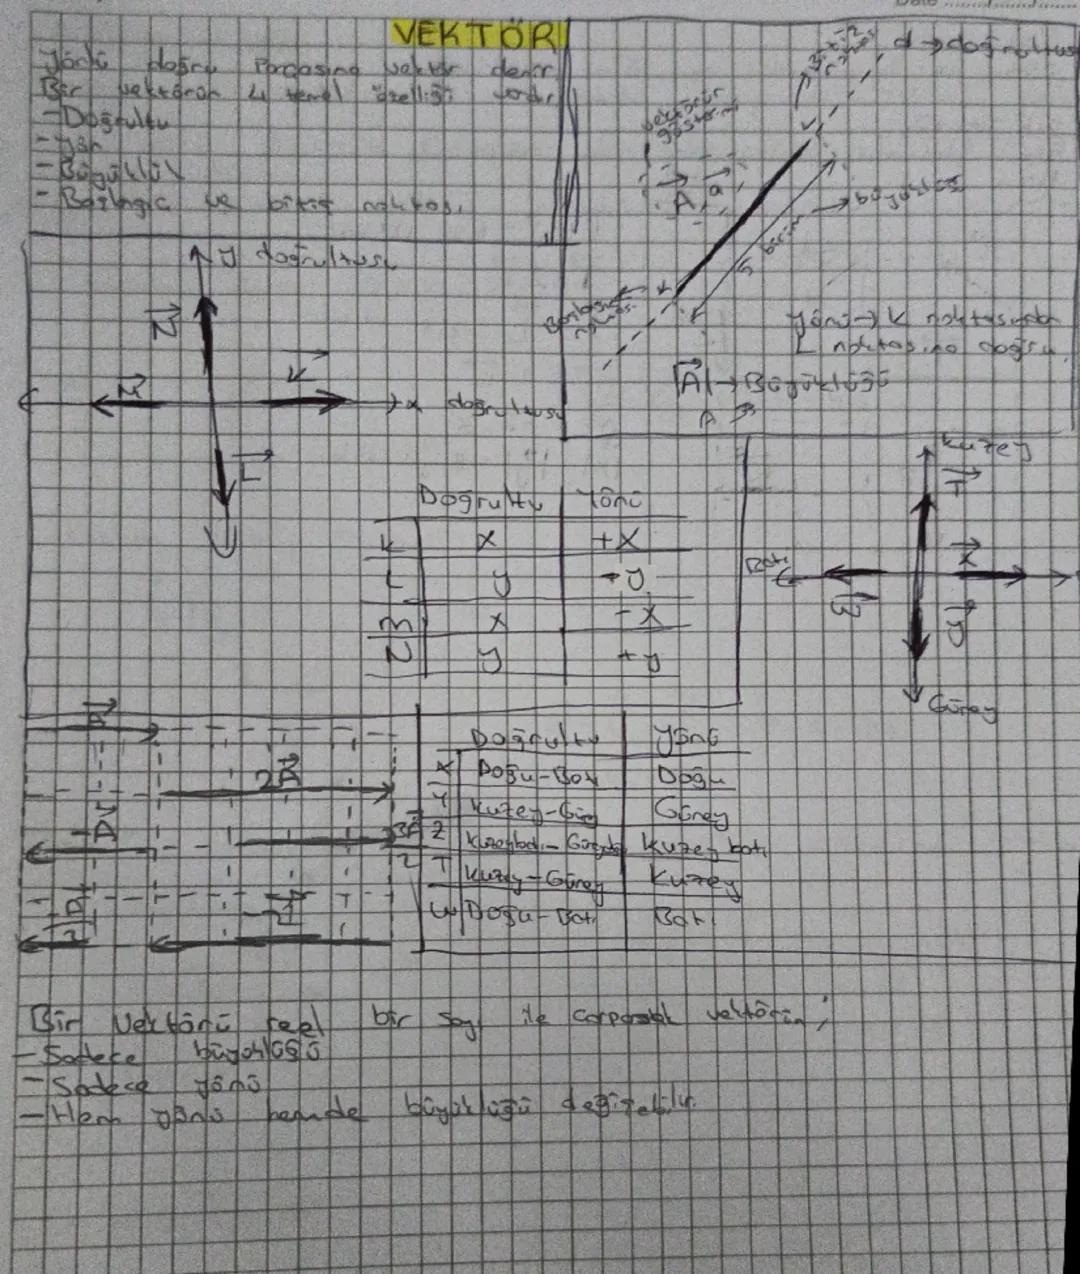 VEKTÖR
Yönlü doğru parçasına vektör denir.
Bir vektörün 4 temel özelliği vardır.
-Doğrultu
-Yön
-Büyüklük
-Başlangıç ve bitiş noktası.
d → doğrultusu
Bitiş noktası
vektörün gösterimi
A a
büyüklüğü
5 birim
Başlangıç noktası
K
L
Yönü → K noktasından
L noktasına doğru
|A| → Büyüklüğü
A
y doğrultusu
N
M
K
x doğrultusu
L
Doğrultu Yönü
K x +x
L y -y
M x -x
N y +y
Kuzey
T
X
Batı
W
Y
Güney
A
2A
-A
3A
2
-2A
Doğrultu Yönü
X Doğu-Batı Doğu
Y Kuzey-Güney Güney
Z Kuzeybatı-Güneydoğu Kuzey batı
T Kuzey-Güney Kuzey
W Doğu-Batı Batı
Bir Vektörü reel bir sayı ile çarparsak vektörün;
-Sadece büyüklüğü
-Sadece yönü
-Hem yönü hemde büyüklüğü değişebilir.